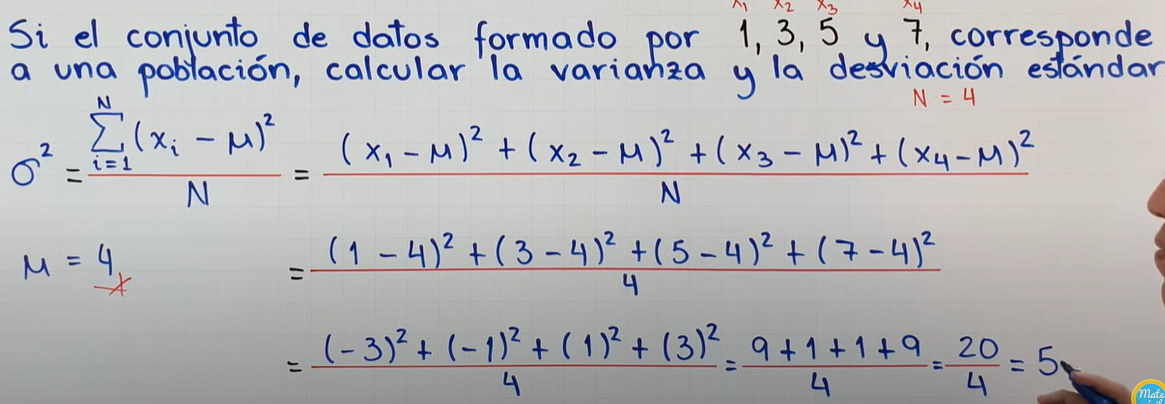 x₁ x₂ x₃ x₄
Si el conjunto de datos formado por 1, 3, 5 y 7, corresponde
a una población, calcular la varianza y la desviación estándar
N = 4
σ² = \frac{\sum_{i=1}^{N} (x_i - μ)²}{N} = \frac{(x₁ - μ)² + (x₂ - μ)² + (x₃ - μ)² + (x₄ - μ)²}{N}
μ = 4 = \frac{(1 - 4)² + (3 - 4)² + (5 - 4)² + (7 - 4)²}{4}
= \frac{(-3)² + (-1)² + (1)² + (3)²}{4} = \frac{9 + 1 + 1 + 9}{4} = \frac{20}{4} = 5
Mate